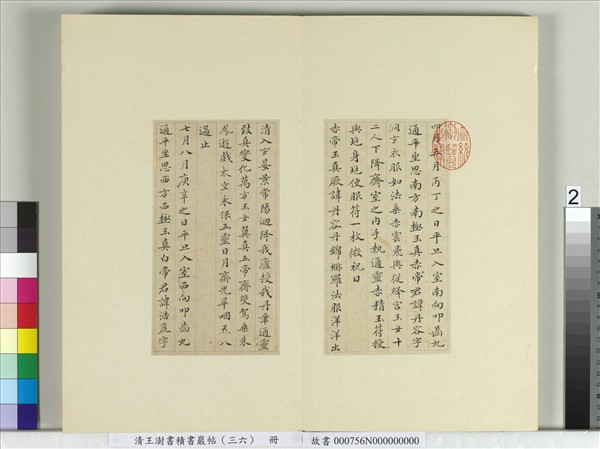 四月五月丙丁之日平旦入室南向叩齒九
通平坐思南方南極玉真赤帝君諱丹容字
洞玄衣服如法乘赤雲飛輿從絳宮玉女十
二人下降齋室之內手執通靈赤精玉符授
與兆身兆便服符一枚微祝曰
赤帝玉真厥諱丹容丹錦緋羅法服洋洋出
清入玄晏景常陽迴降我廬授我丹章通靈
致真變化萬方玉女翼真五帝齊雙駕乘朱
鳳遊戲太空永保五靈日月齊光畢咽炁八
過止
七月八月庚辛之日平旦入室西向叩齒九
通平坐思西方西極玉真白帝君諱浩庭字
清王澍書積書巖帖（三六） 冊 故書 000756N000000000
2